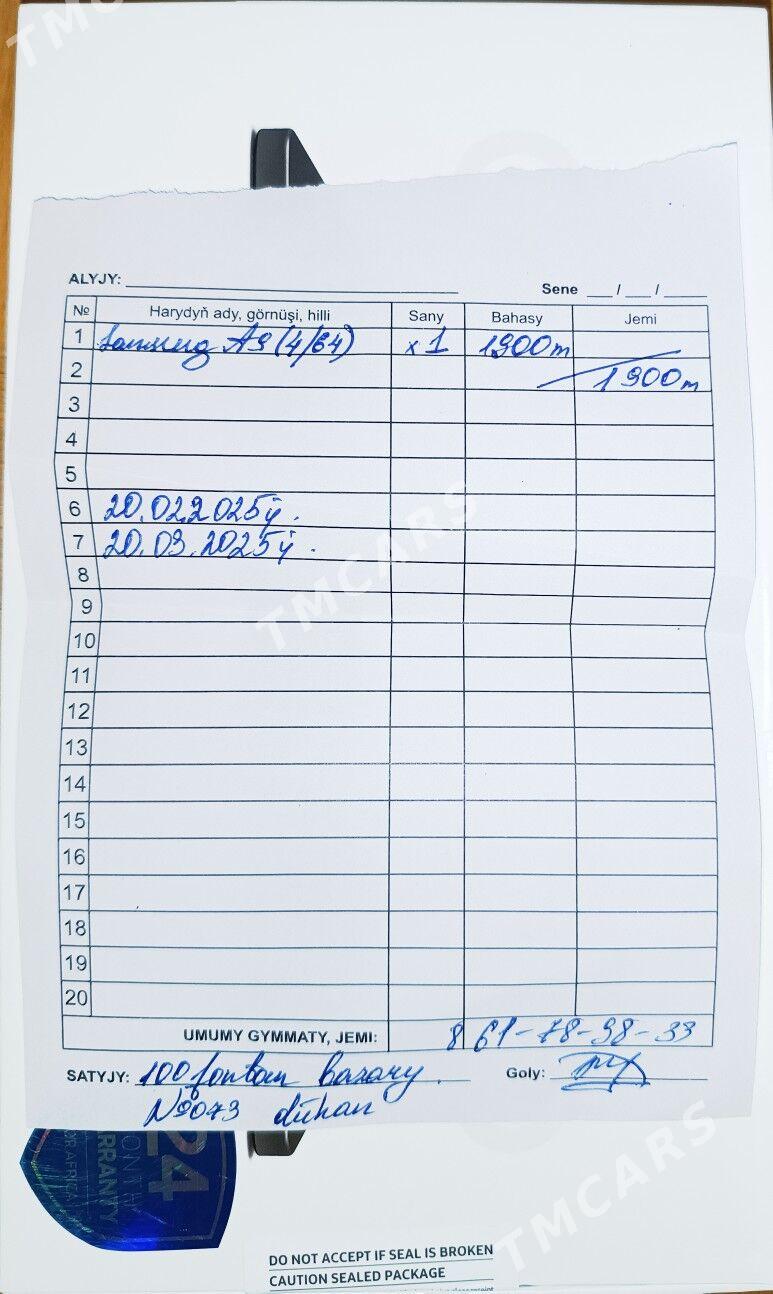 TMCARS
ALYJY:
Sene __/__/__
№ Harydyň ady, görnüşi, hilli Sany Bahasy Jemi
1 Samsung A9 (4/64) x1 1900m
2 1900m
3
4
5
6 20.02.2025ý.
7 20.03.2025ý.
8
TMCARS
9
10
11
12
13
14
15
16
17
18
19
20
UMUMY GYMMATY, JEMI: 8 61-78-98-33
SATYJY: 100 fontan bazary. Goly:
№073 dükan
24
MONTH
WARRANTY
FOR AFRICA
TMCARS
DO NOT ACCEPT IF SEAL IS BROKEN
CAUTION SEALED PACKAGE